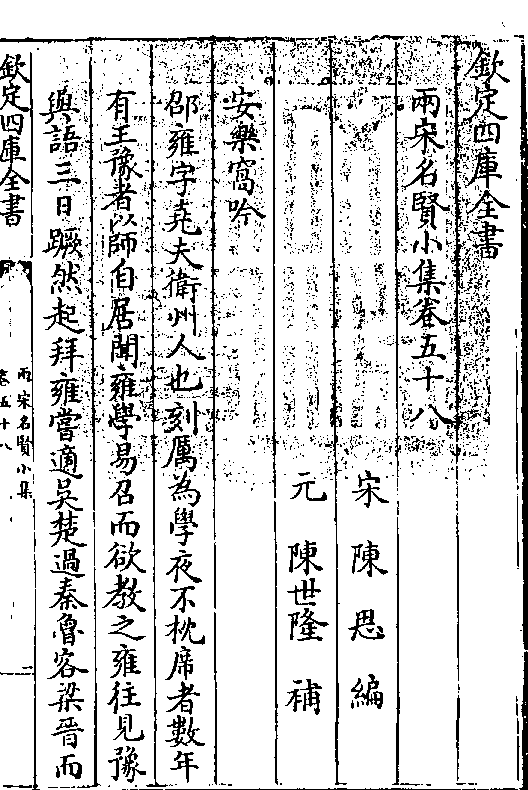 欽定四庫全書
兩宋名賢小集卷五十八
宋 陳思 編
元 陳世隆 補
安樂窩吟
邵雍字堯夫衛州人也刻厲為學夜不枕席者數年
有王豫者以師自居聞雍學易召而欲教之雍往見豫
與語三日蹶然起拜雍嘗適吳楚過秦魯客梁晉而
欽定四庫全書
兩宋名賢小集
卷五十八
一